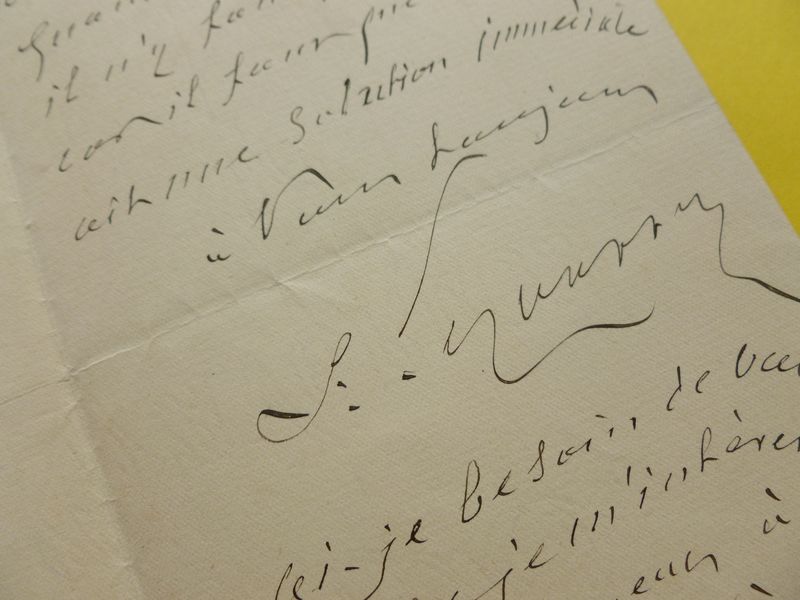 il n'y faut
car il faut que
ait une solution immédiate
à vous toujours
ai-je besoin de vou
je m'intéres
à